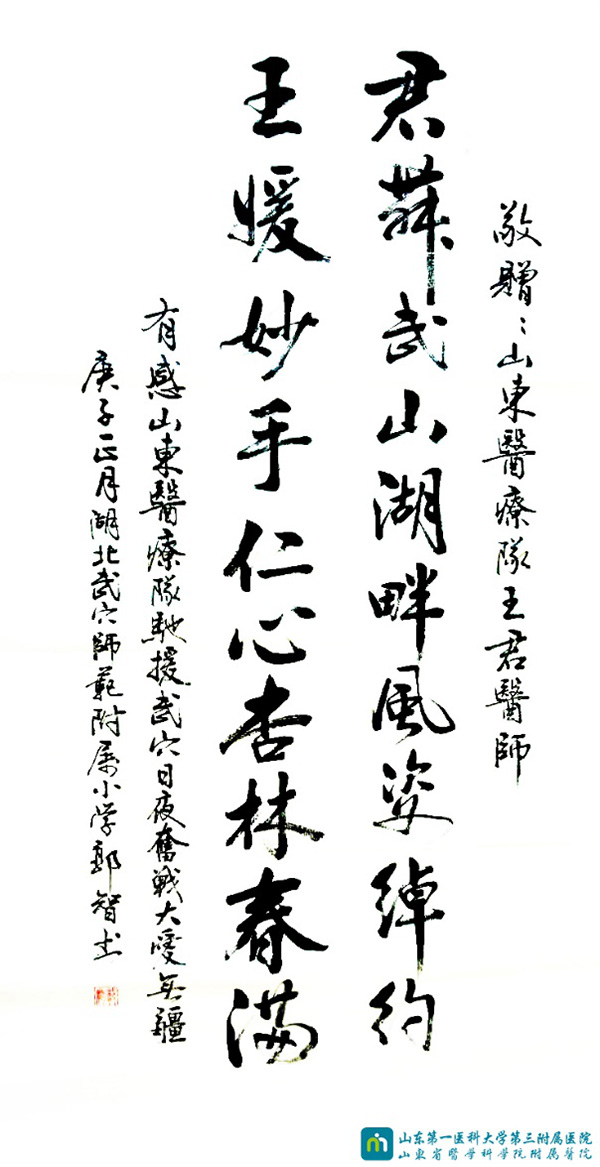 敬贈：山東醫療隊王君醫師
君舞武山湖畔風姿綽約
王暖妙手仁心杏林春滿
有感山東醫療隊馳援武穴日夜奮戰大愛無疆
庚子正月湖北武穴師範附属小学郭智书
山东第一医科大学第三附属医院
山東省醫學科學院附屬醫院